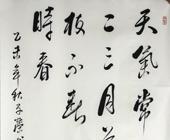 天氣常
二三月花
枝不斷
時春
乙未年秋